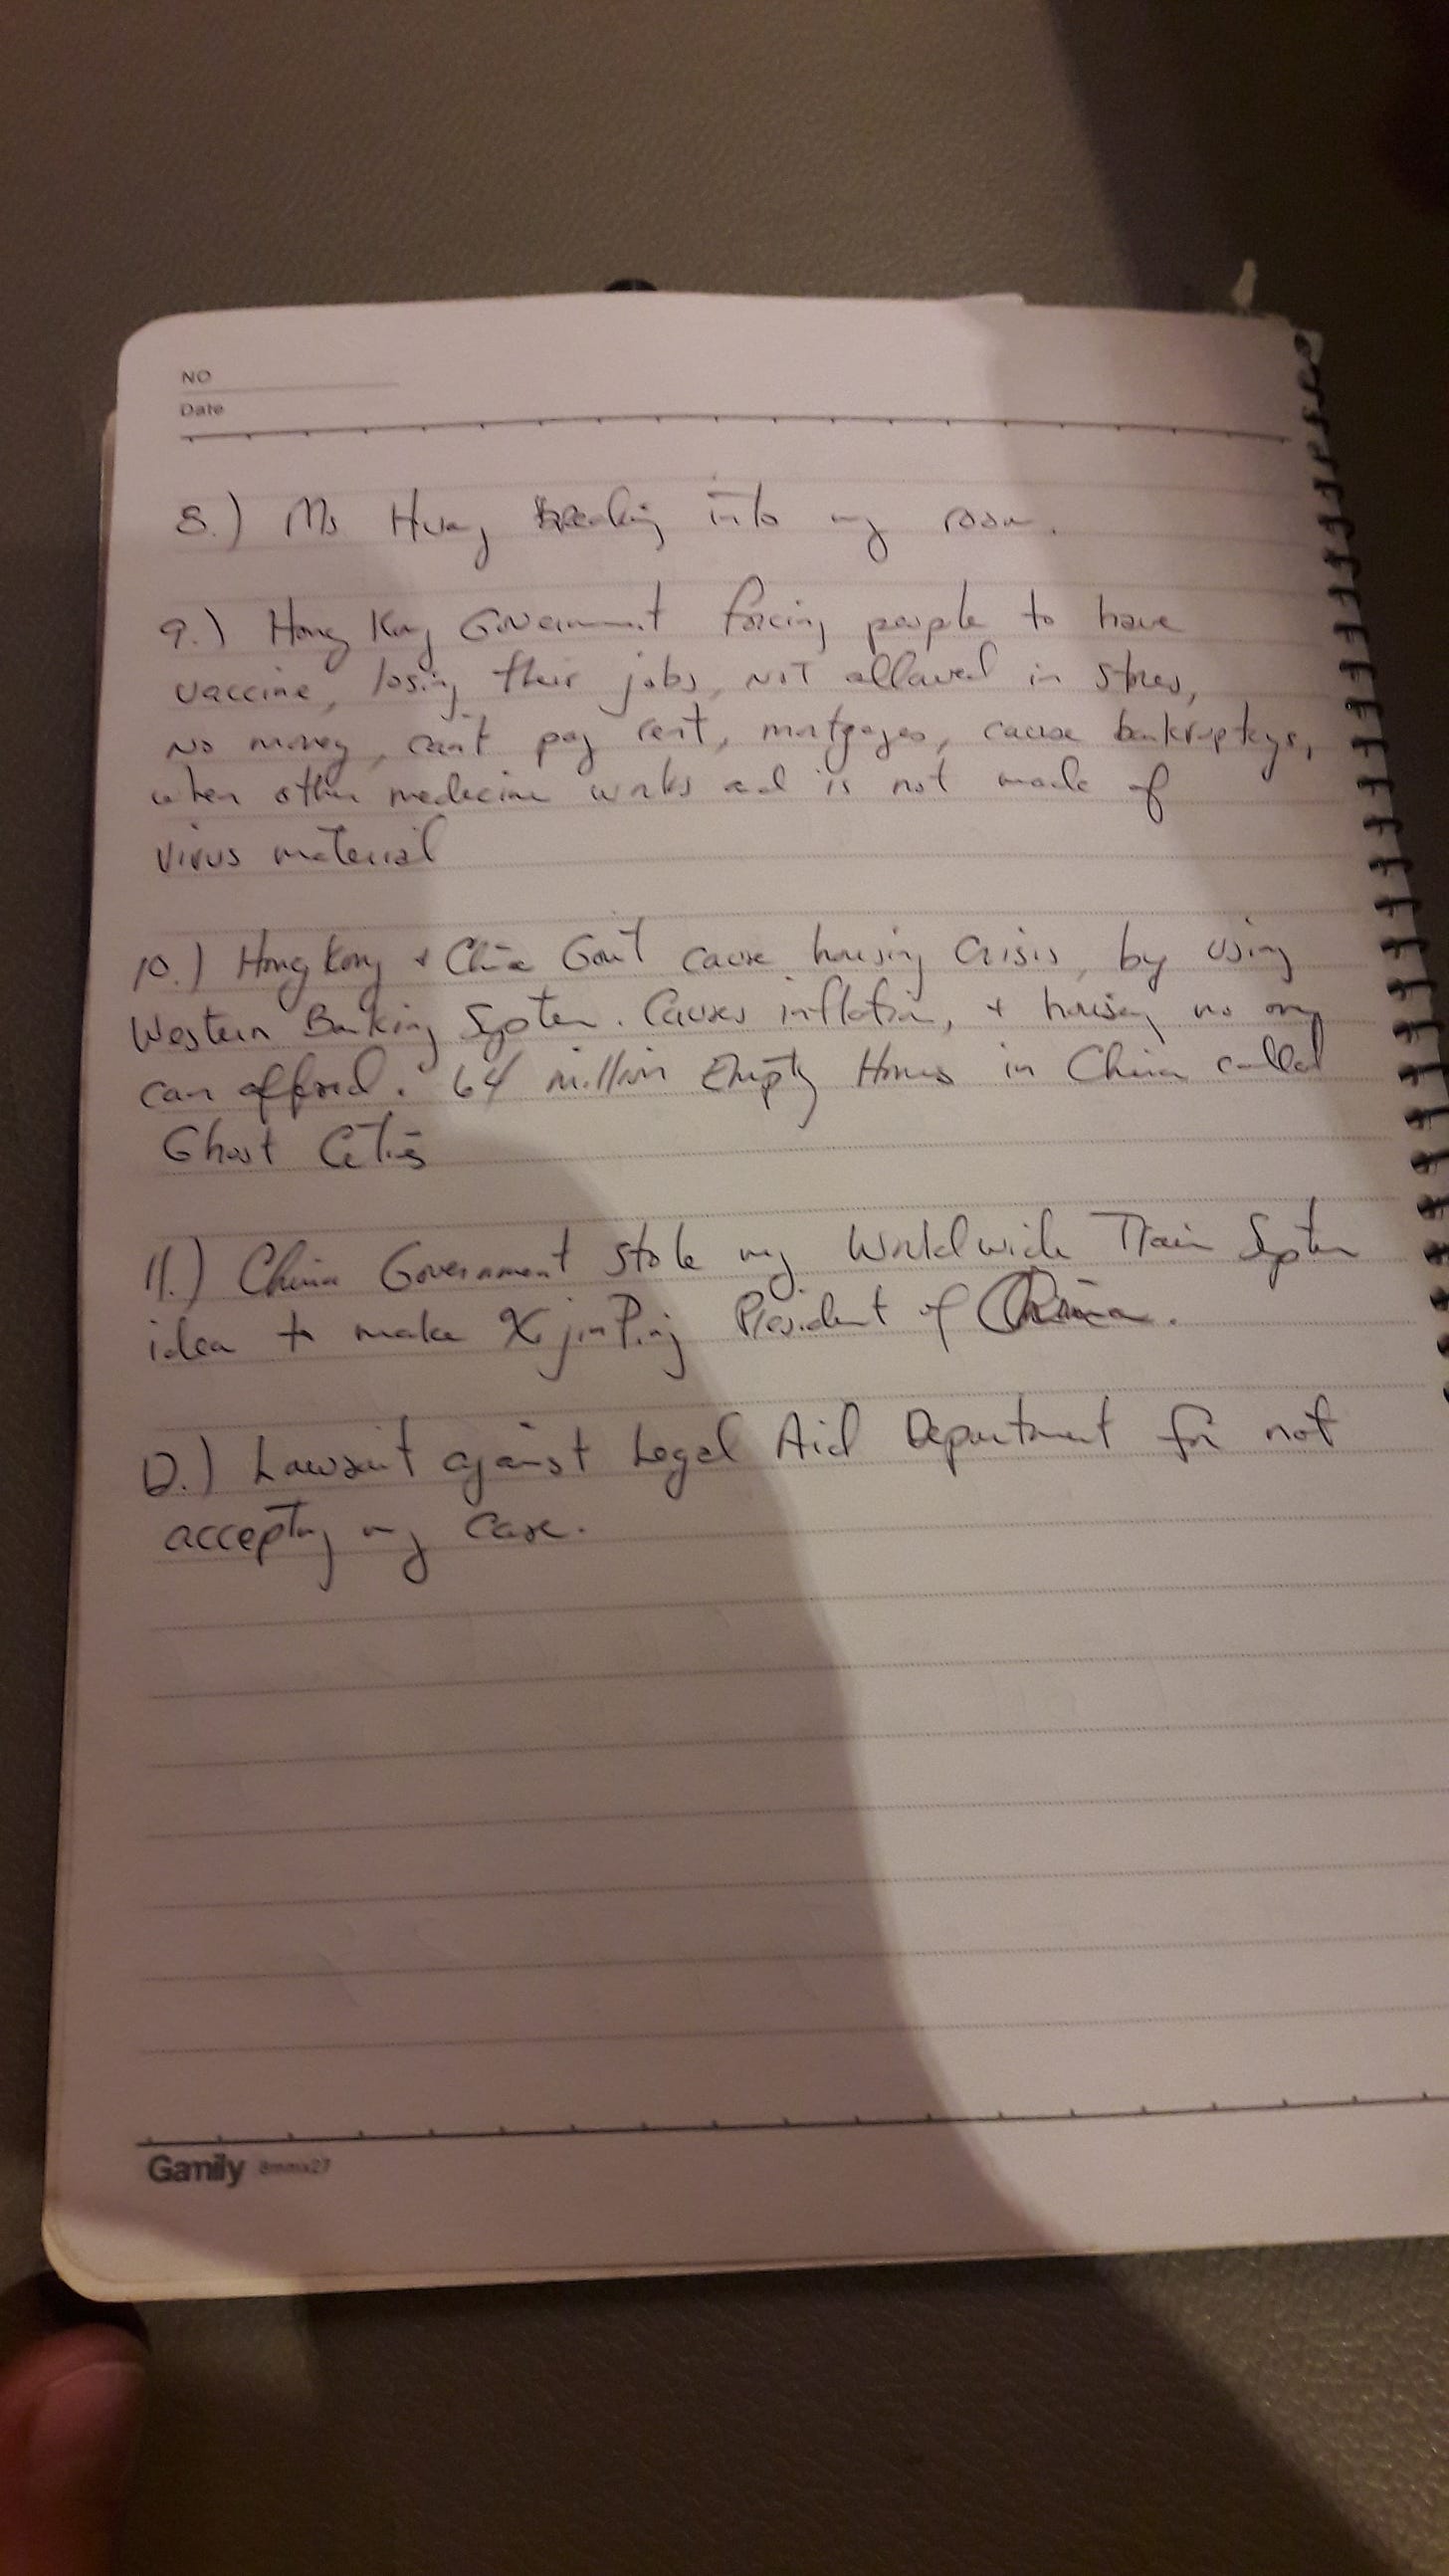 NO
Date
8.) Ms Huang breaking into my room.
9.) Hong Kong Government forcing people to have
vaccine, losing their jobs, not allowed in stores,
no money, can't pay rent, mortgages, cause bankruptcys,
when other medicine works and is not made of
virus material
10.) Hong Kong + China Gov't cause housing crisis, by using
Western Banking System. Causes inflation, + housing no one
can afford. 64 million Empty Homes in China called
Ghost Cities
11.) China Government stole my Worldwide Train System
idea to make Xi jin Ping President of China.
12.) Lawsuit against Legal Aid Department for not
accepting my case.
Gamily 8mmx27